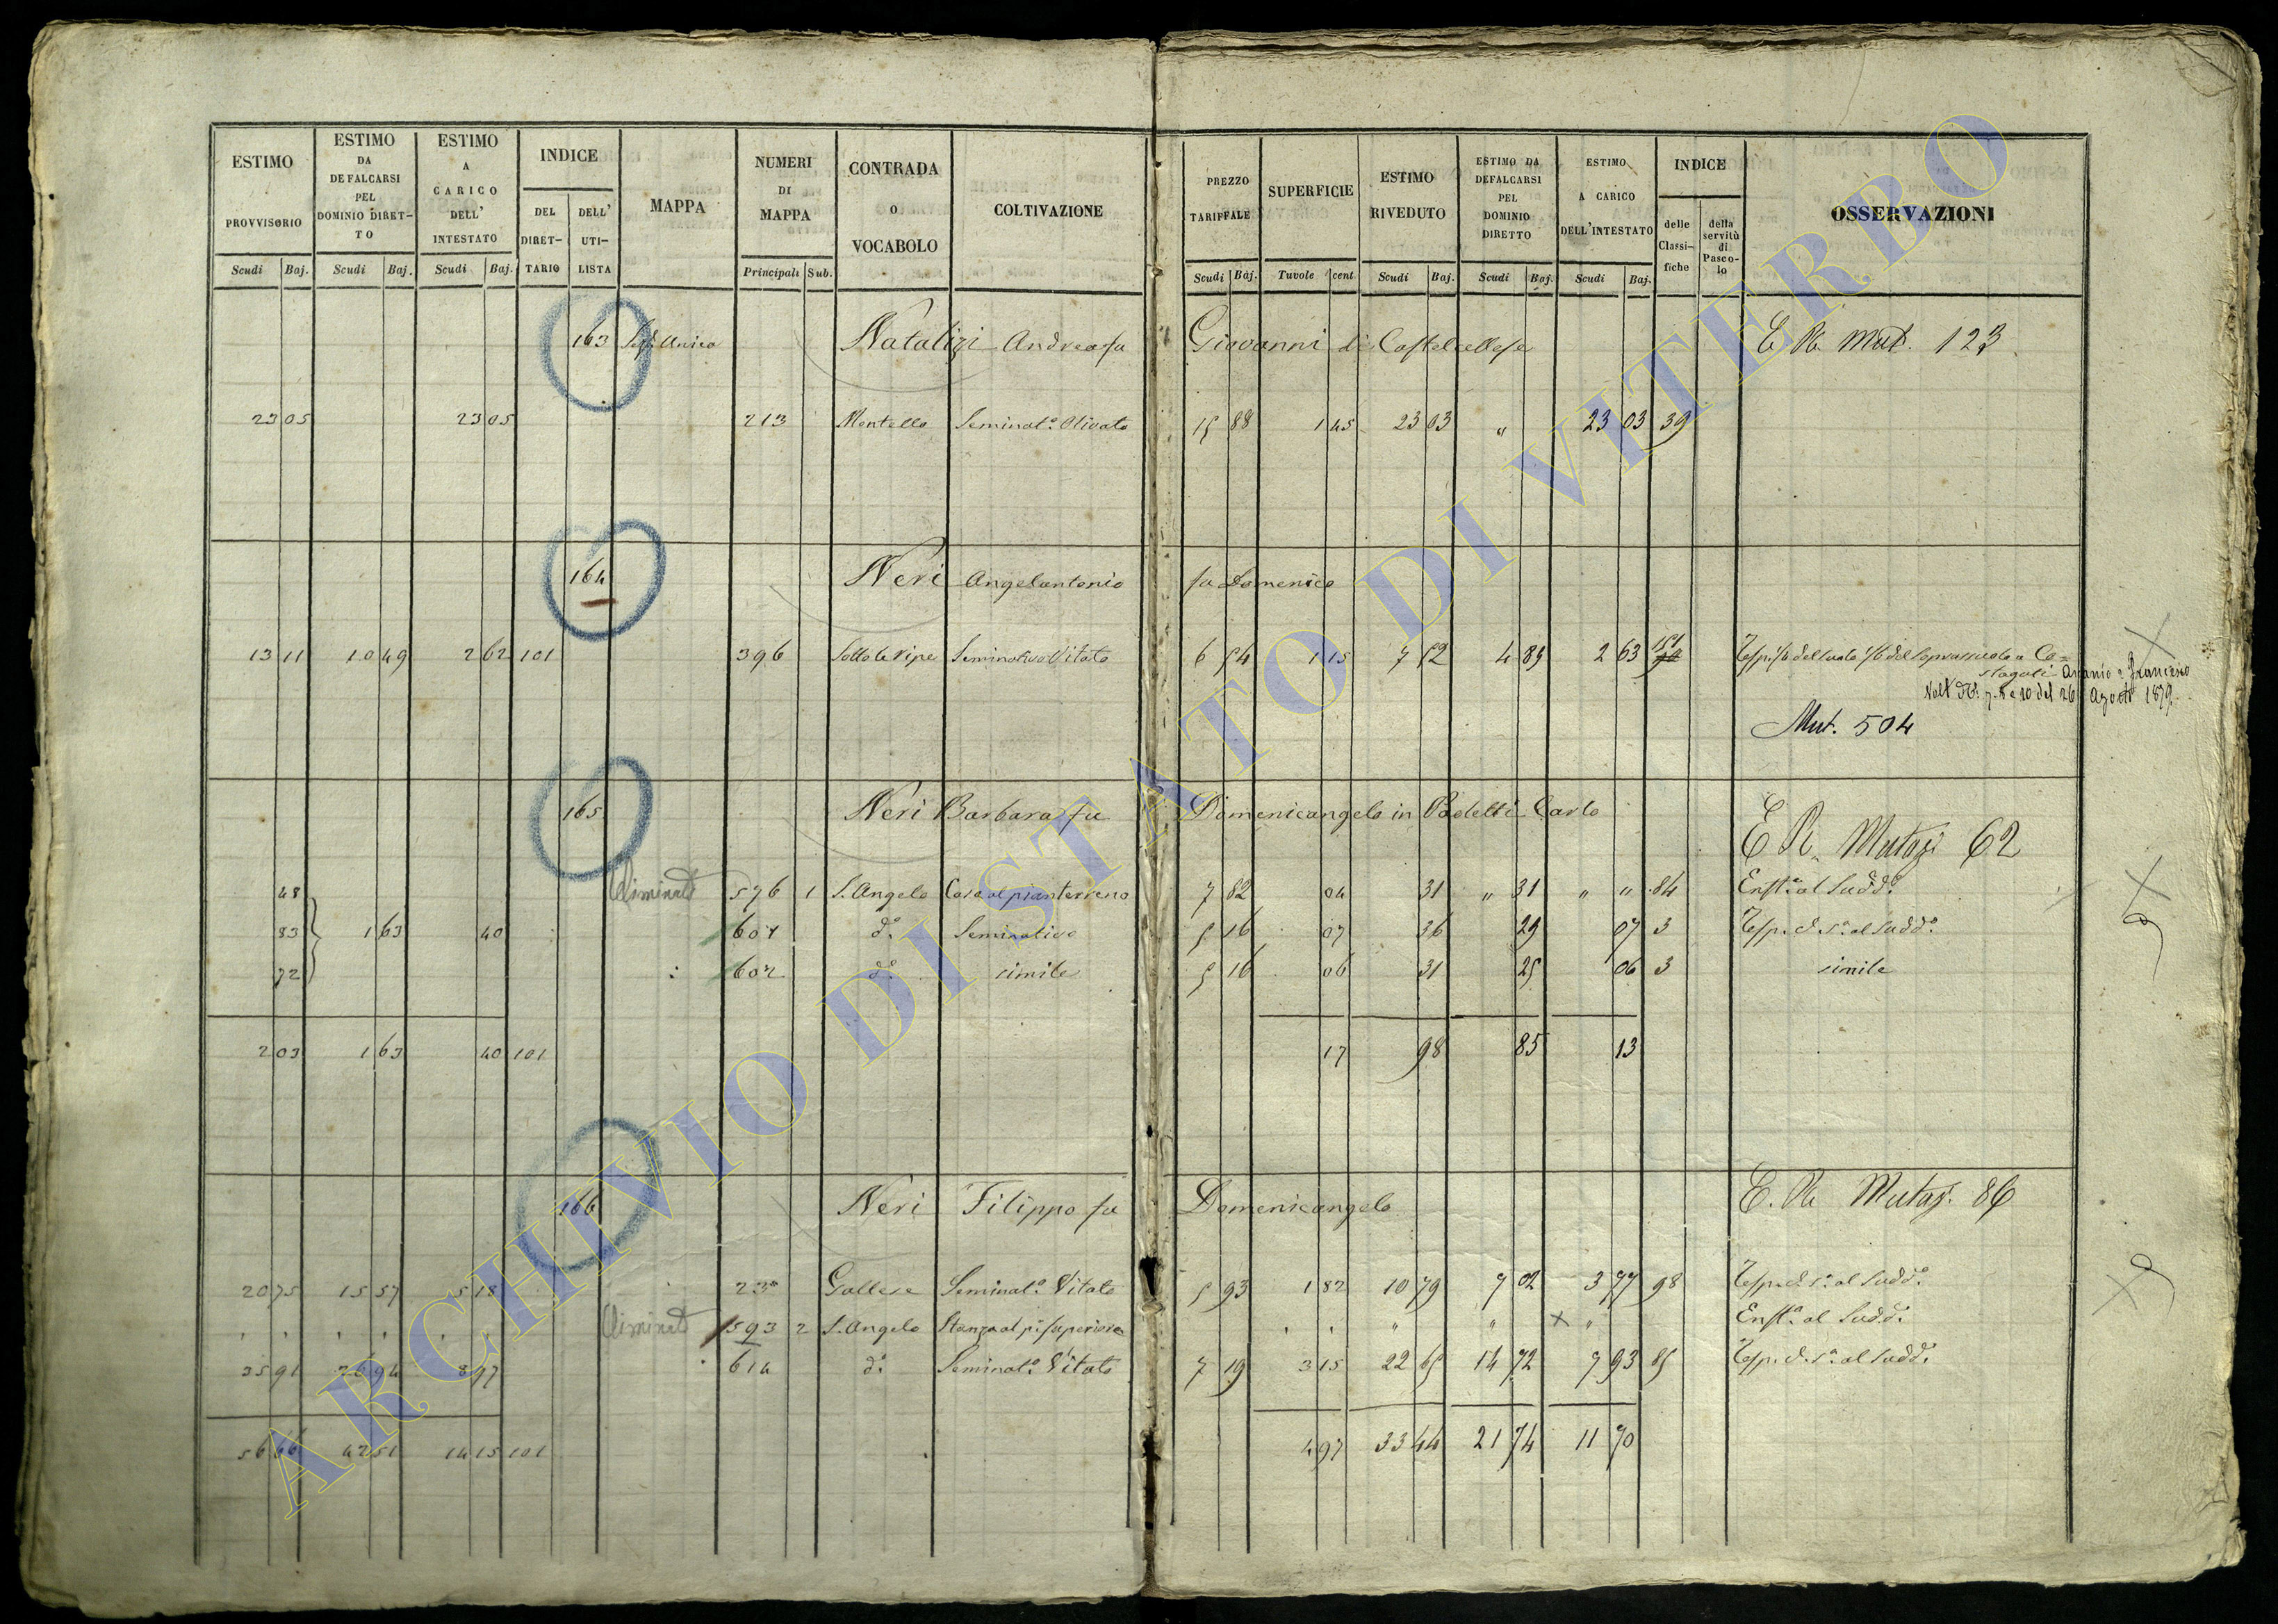 ESTIMO PROVVISORIO Scudi Baj.
ESTIMO DA DEFALCARSI PEL DOMINIO DIRETTO Scudi Baj.
ESTIMO A CARICO DELL' INTESTATO Scudi Baj.
INDICE DEL DIRET-TARIO DELL' UTI-LISTA
MAPPA
NUMERI DI MAPPA Principali Sub.
CONTRADA O VOCABOLO
COLTIVAZIONE
PREZZO TARIFFALE Scudi Baj.
SUPERFICIE Tavole cent
ESTIMO RIVEDUTO Scudi Baj.
ESTIMO DA DEFALCARSI PEL DOMINIO DIRETTO Scudi Baj.
ESTIMO A CARICO DELL'INTESTATO Scudi Baj.
INDICE delle Classi-fiche della servitù di Pasco-lo
OSSERVAZIONI
163 Unica Natalizi Andrea fu Giovanni di Castelcellese E R. Mut. 123
23 05 23 05 213 Montello Seminat.º Olivato 15 88 1 45 23 03 " 23 03 39
164 Neri Angelantonio fu Domenico
13 11 10 49 2 62 101 396 Sotto le ripe Seminativo Vitato 6 54 1 15 7 52 4 89 2 63 151
Ascanio e Francesco
26 Agosto 1879
Mut. 504
165 Neri Barbara fu Domenicangelo in Padelli Carlo
E R. Mutaz 62
48 Eliminato 576 1 S. Angelo Casa al pianterreno 7 82 04 31 " 31 " " 84 Enft.ª al Sudd.º
83 1 63 40 601 d.º Seminativo 5 16 07 36 29 07 3 Resp. d. s.ª al sudd.º
72 602 d.º simile 5 16 06 31 25 06 3 simile
2 03 1 63 40 101 17 98 85 13
166 Neri Filippo fu Domenicangelo E. R. Mutaz. 86
20 75 15 57 5 18 23 Gallese Seminat.º Vitato 5 93 1 82 10 79 7 02 3 77 98 Resp. d. s.ª al sudd.º
Eliminato 593 2 S. Angelo Stanza al p.º superiore " " " Enft.ª al Sudd.º
35 91 26 94 8 97 614 d.º Seminat.º Vitato 7 19 3 15 22 65 14 72 7 93 85 Resp. d. s.ª al sudd.º
56 66 42 51 14 15 101 4 97 33 44 21 74 11 70
ARCHIVIO DI STATO DI VITERBO